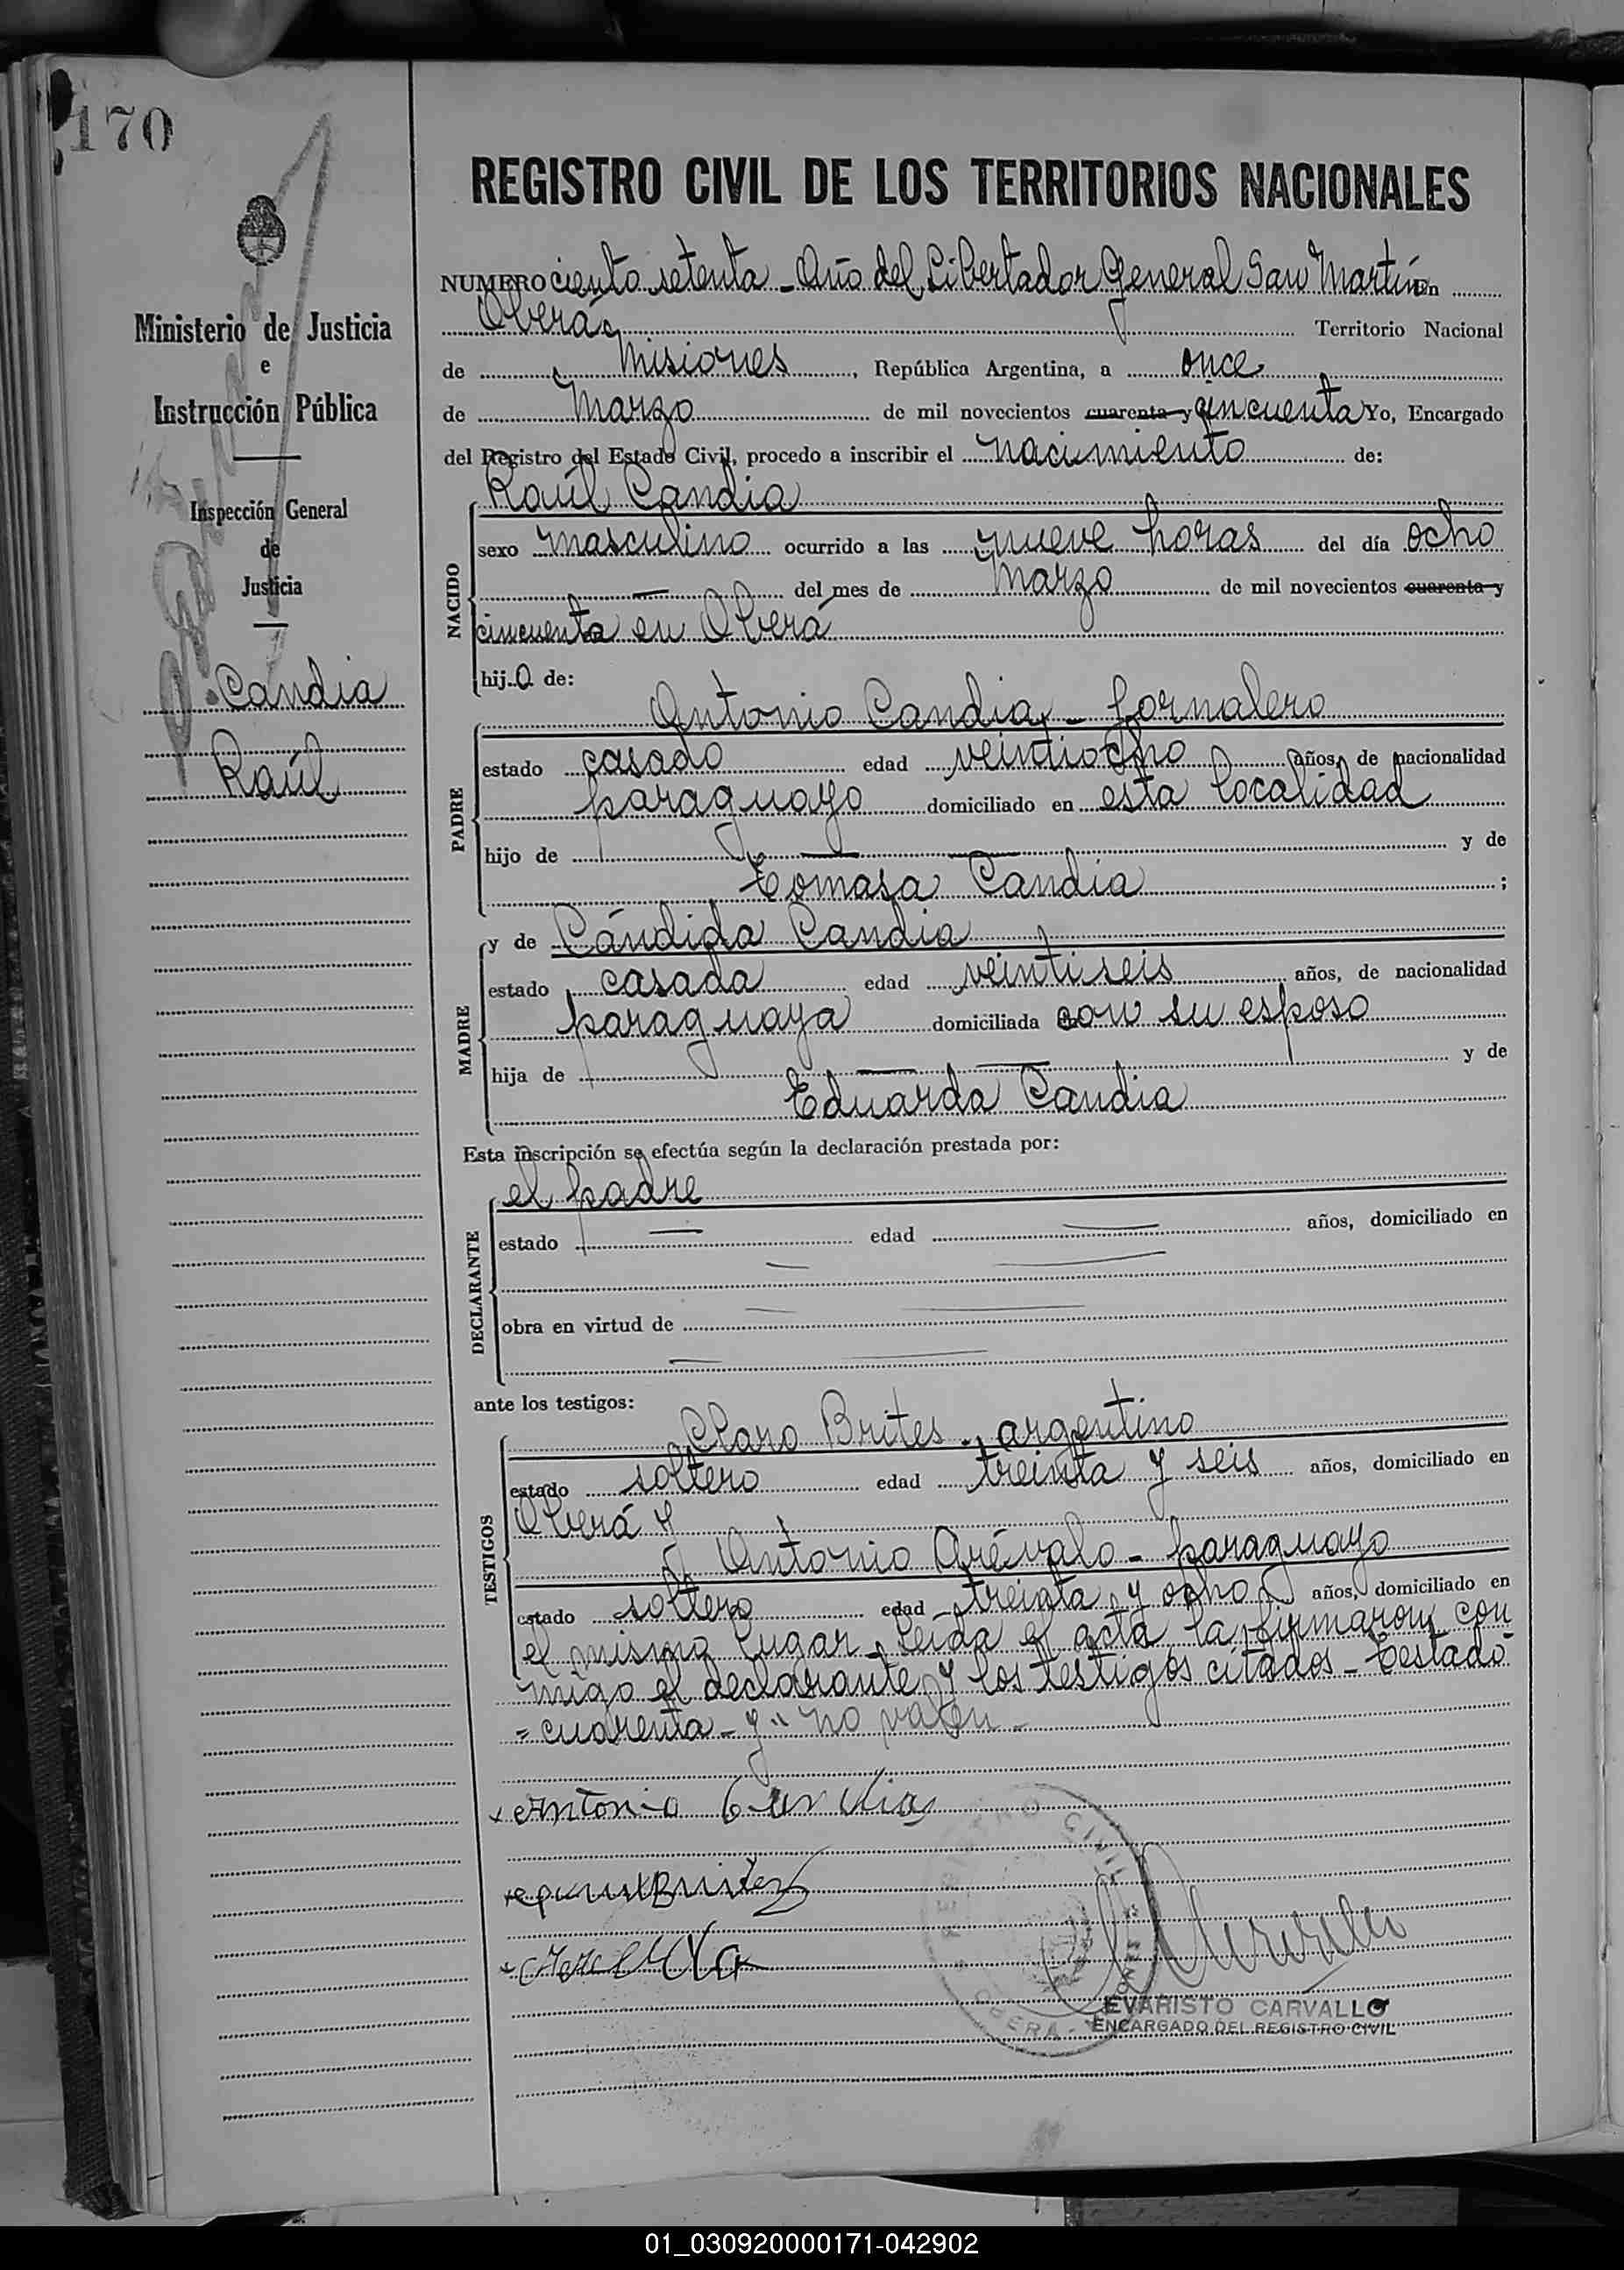 170
REGISTRO CIVIL DE LOS TERRITORIOS NACIONALES
Ministerio de Justicia
e
Instrucción Pública
Inspección General
de
Justicia
Candia
Raúl
NUMERO ciento setenta - Año del Libertador General San Martín en
Oberá, Territorio Nacional
de Misiones, República Argentina, a once
de Marzo de mil novecientos cuarenta y cincuenta Yo, Encargado
del Registro del Estado Civil, procedo a inscribir el nacimiento de:
NACIDO
Raúl Candia
sexo masculino ocurrido a las nueve horas del día ocho
del mes de Marzo de mil novecientos cuarenta y
cincuenta en Oberá
hijo de:
PADRE
Antonio Candia - Jornalero
estado casado edad veintiocho años, de nacionalidad
paraguayo domiciliado en esta localidad
hijo de y de
Tomasa Candia ;
MADRE
y de Cándida Candia
estado casada edad veintiseis años, de nacionalidad
paraguaya domiciliada con su esposo
hija de y de
Eduarda Candia
Esta inscripción se efectúa según la declaración prestada por:
DECLARANTE
el padre
estado edad años, domiciliado en
obra en virtud de
ante los testigos:
TESTIGOS
Claro Brites - argentino
estado soltero edad treinta y seis años, domiciliado en
Oberá y
Antonio Arévalo - paraguayo
estado soltero edad treinta y ocho años, domiciliado en
el mismo lugar, Leída el acta la firmaron con
migo el declarante y los testigos citados - Testado
"cuarenta - y" no valen -
Antonio Candia
Britez
REGISTRO CIVIL
OBERA - MISIONES
EVARISTO CARVALLO
ENCARGADO DEL REGISTRO CIVIL
01_030920000171-042902